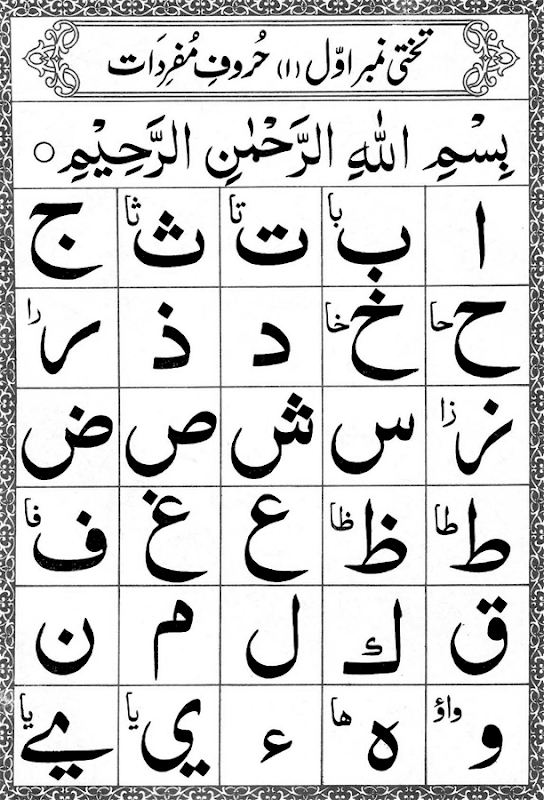 تختی نمبر اوّل (۱) حُروفِ مُفرِدَات
بِسْمِ اللّٰهِ الرَّحْمٰنِ الرَّحِيْمِ ○
ا ب با ت تا ث ثا ج
ح حا خ خا د ذ ر را
ز زا س ش ص ض
ط طا ظ ظا ع غ ف فا
ق ك ل م ن
و واؤ ه ها ء ي یا ے یا